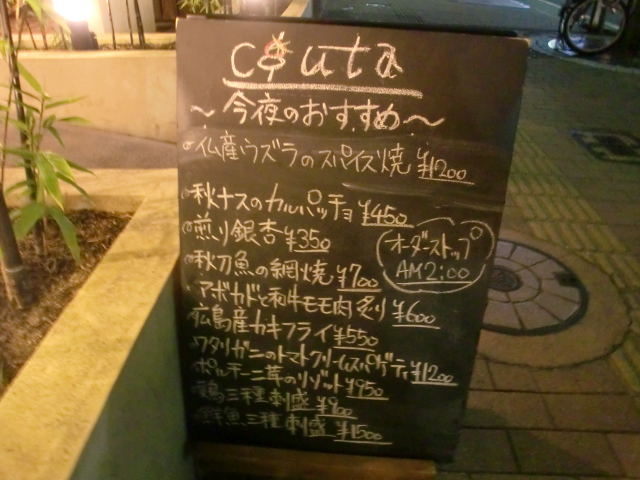 ~今夜のおすすめ~
仏産ウズラのスパイス焼 ¥1200
秋ナスのカルパッチョ ¥450
煎り銀杏 ¥350
オーダーストップ
AM2:00
秋刀魚の網焼 ¥700
アボカドと和牛モモ肉炙り ¥600
広島産カキフライ ¥550
ワタリガニのトマトクリームスパゲティ ¥1200
ポルチーニ茸のリゾット ¥950
鶏三種刺盛 ¥900
鮮魚三種刺盛 ¥1500